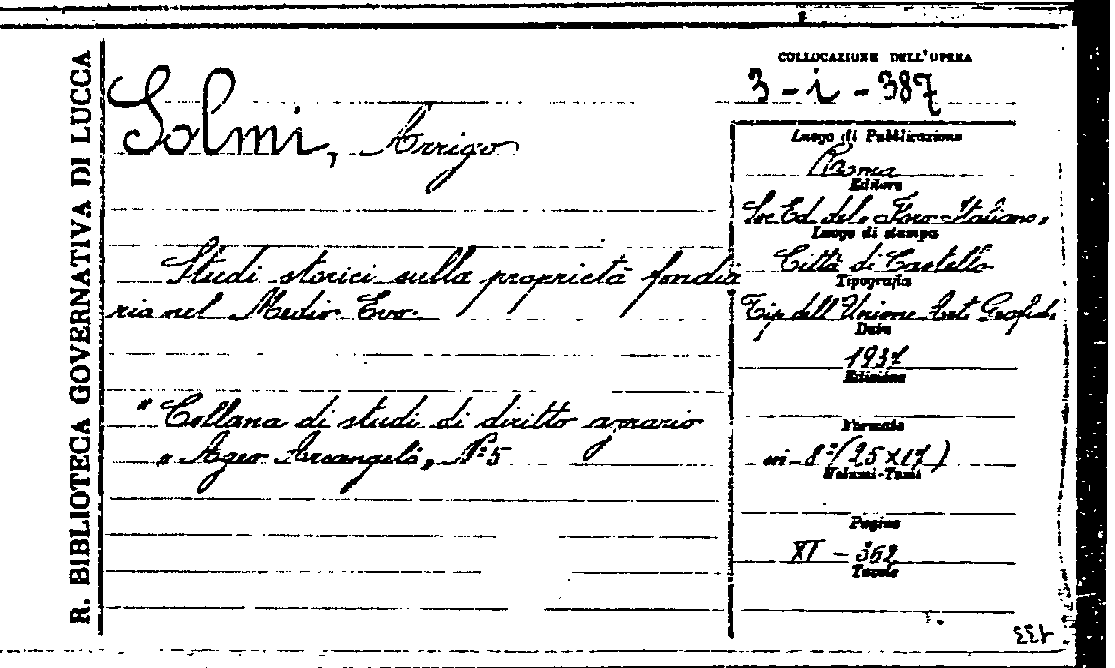 R. BIBLIOTECA GOVERNATIVA DI LUCCA
COLLOCAZIONE DELL'OPERA
3-i-387
Solmi, Arrigo
Luogo di Pubblicazione
Roma
Editore
Soc. Ed. del "Foro Italiano"
Luogo di stampa
Città di Castello
Tipografia
Tip dell'Unione Arti Grafiche
Data
1937
Edizione
Studi storici sulla proprietà fondia
ria nel Medio Evo.
"Collana di studi di diritto agrario
"Ageo Arcangeli" N° 5
Formato
in-8° (25x17)
Volumi-Tomi
Pagine
XI - 352
Tavole